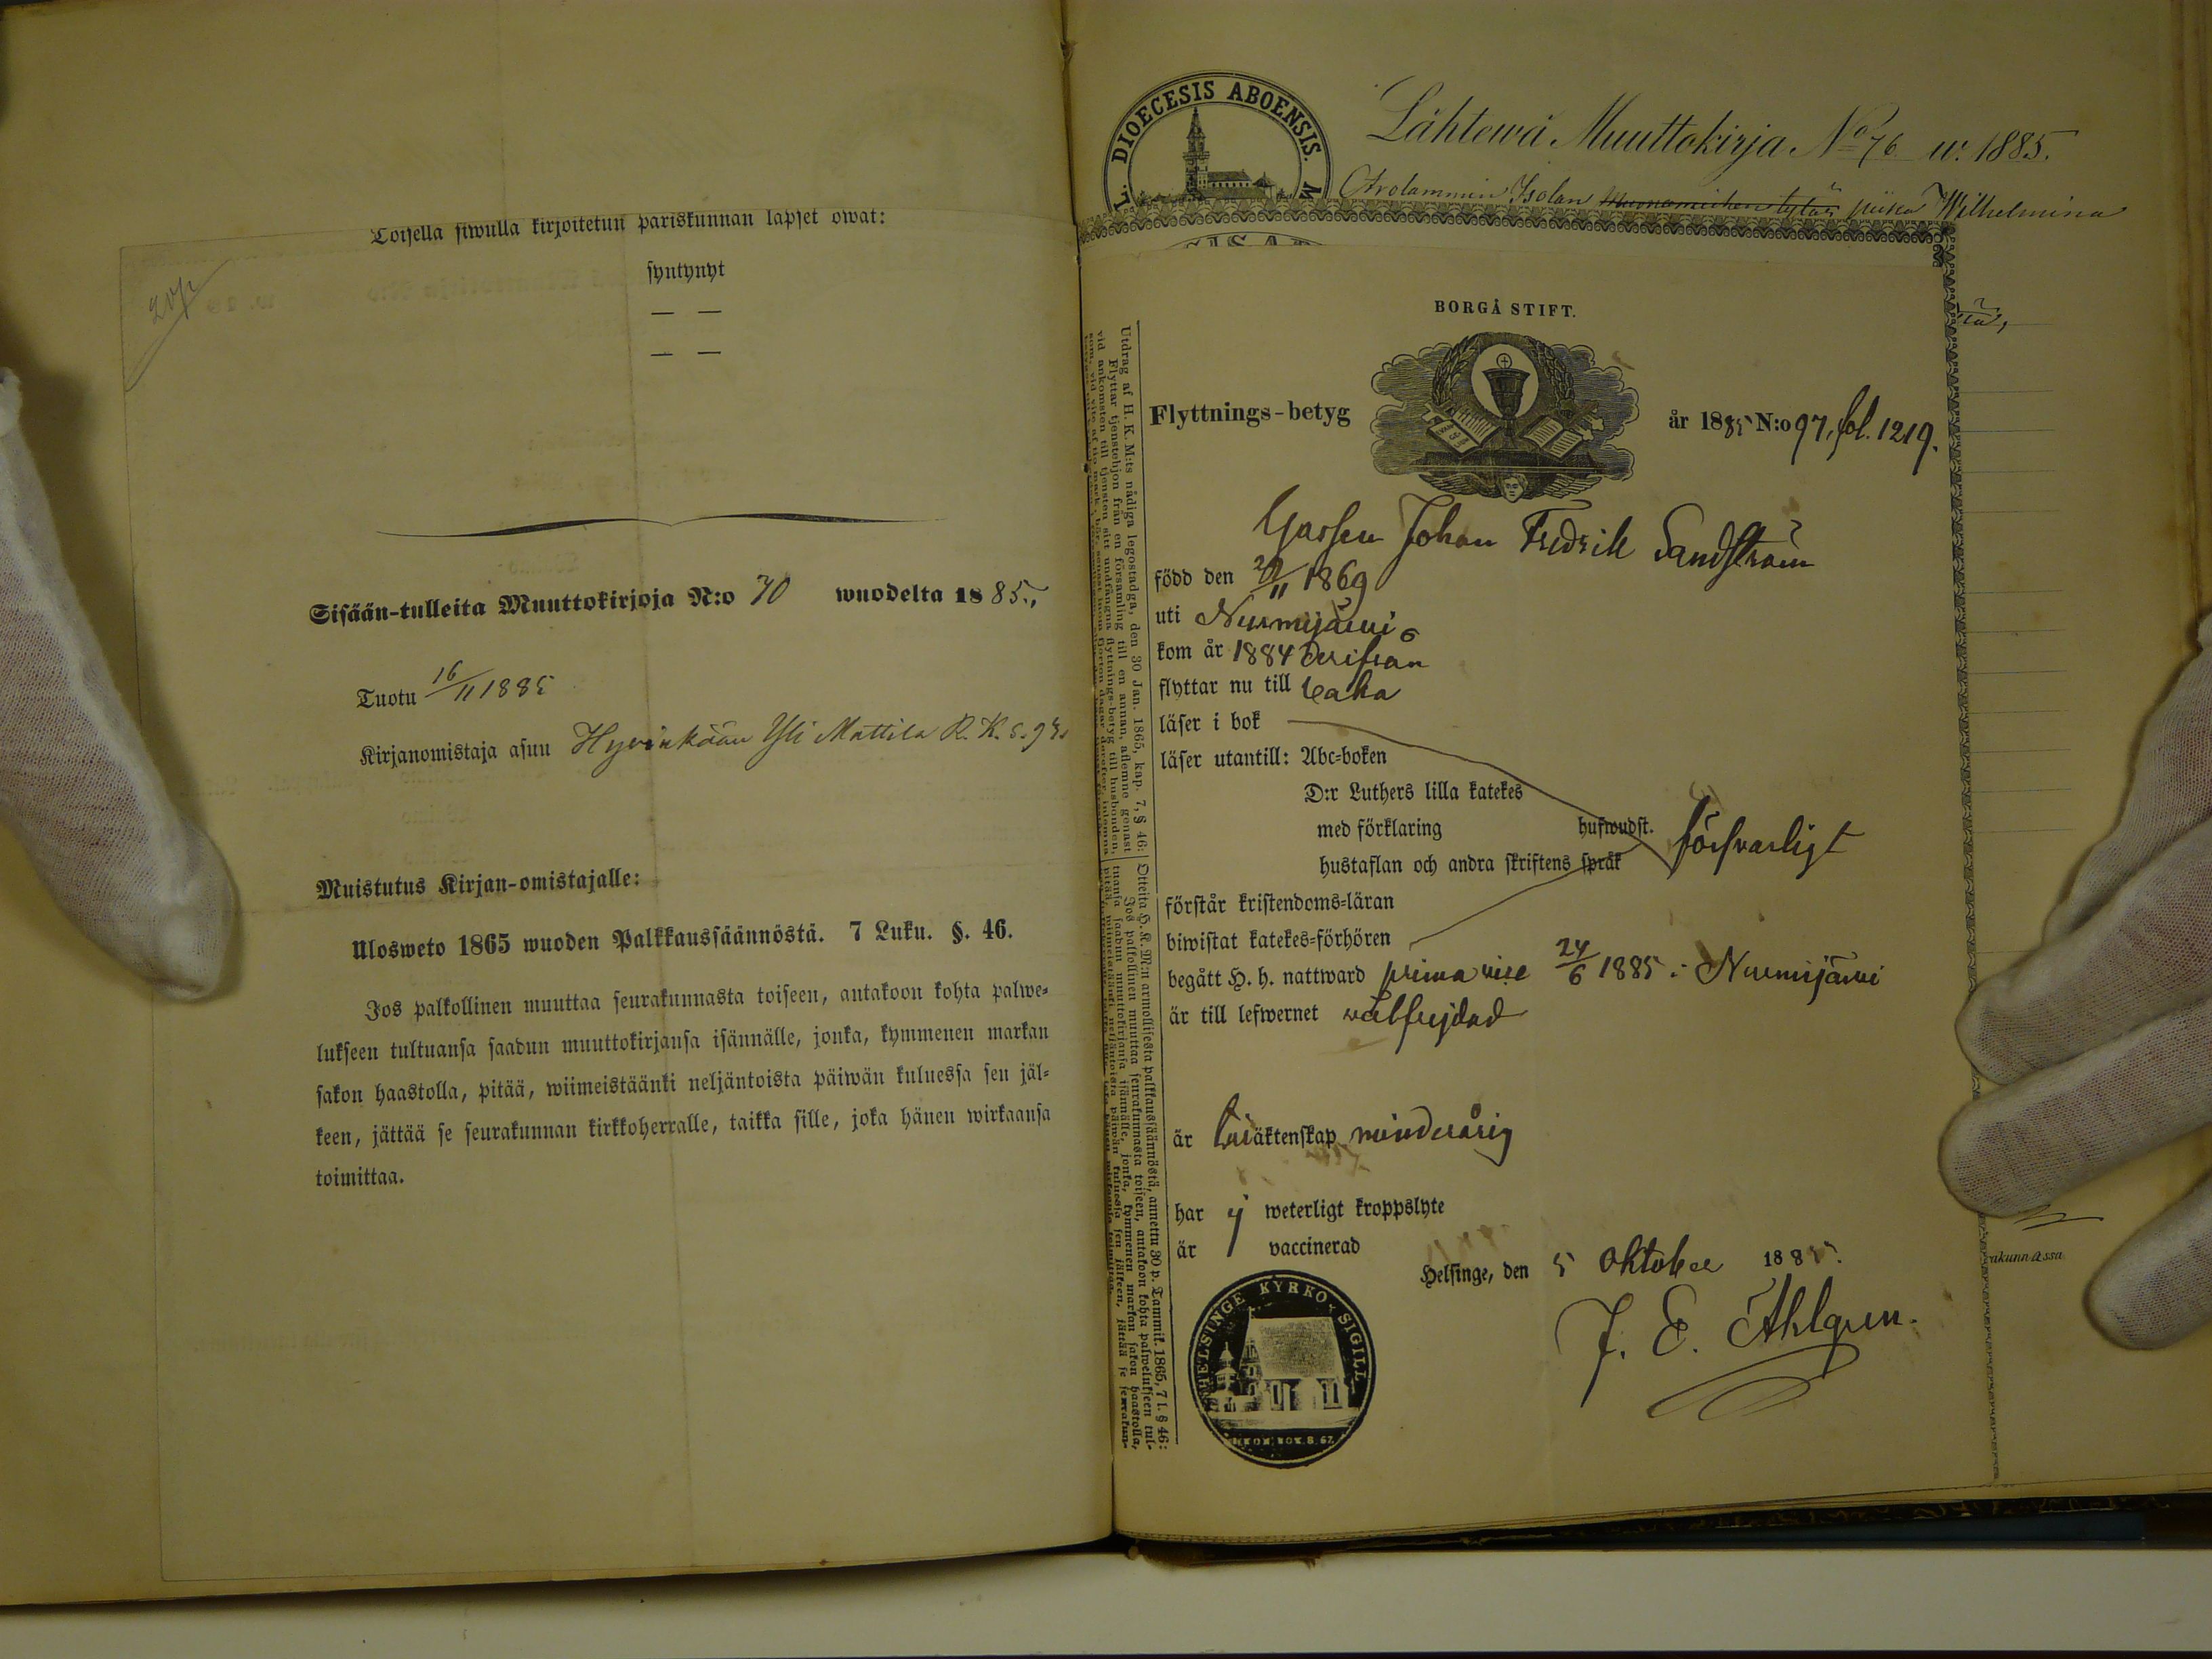 Toisella siwulla kirjoitetun pariskunnan lapset owat:
syntynyt
— —
— —
Sisään-tulleita Muuttokirjoja N:o 70 wuodelta 1885.,
Tuotu 16/11 1885
Kirjanomistaja asuu Hyvinkään Yli Mattila R. K. s.
Muistutus Kirjan-omistajalle:
Ulosweto 1865 wuoden Palkkaussäännöstä. 7 Luku. §. 46.
Jos palkollinen muuttaa seurakunnasta toiseen, antakoon kohta palwe-
lukseen tultuansa saadun muuttokirjansa isännälle, jonka, kymmenen markan
sakon haastolla, pitää, wiimeistäänki neljäntoista päiwän kuluessa sen jäl-
keen, jättää se seurakunnan kirkkoherralle, taikka sille, joka hänen wirkaansa
toimittaa.
L. DIOECESIS ABOENSIS. M
Lähtewä Muuttokirja No 76 w. 1885.
Isolan piika Wilhelmina
BORGÅ STIFT.
Flyttnings-betyg år 1885 N:o 97, fol. 1219.
Gossen Johan Fredrik Sandström
född den /11 1869
uti Nurmijärvi
kom år 1884 derifrån
flyttar nu till
läser i bok
läser utantill: Abc-boken
D:r Luthers lilla katekes
med förklaring hufwudst. försvarligt
hustaflan och andra skriftens språk
förstår kristendoms-läran
biwistat katekes-förhören
begått H. h. nattward prima vice 24/6 1885 i Nurmijärvi
är till lefwernet välfrejdad
är äktenskap minderårig
har ej weterligt kroppslyte
är vaccinerad
Helsinge, den 5 oktober 1885.
J. E. Ahlgren.
HELSINGE KYRKO SIGILL
Utdrag af H. K. M:ts nådiga legostadga, den 30 Jan. 1865, kap. 7, § 46:
Flyttar tjenstehjon från en församling till en annan, aflemne genast
vid ankomsten till tjensten sitt undfångna flyttnings-betyg till husbonden,
Otteita H. K. M:n armollisesta palkkaussäännöstä, annettu 30 p. Tammik. 1865, 7 l. § 46:
Jos palkollinen muuttaa seurakunnasta toiseen, antakoon kohta palwelukseen tul-
tuansa saadun muuttokirjansa isännälle, jonka, kymmenen markan sakon haastolla,
akunnassa